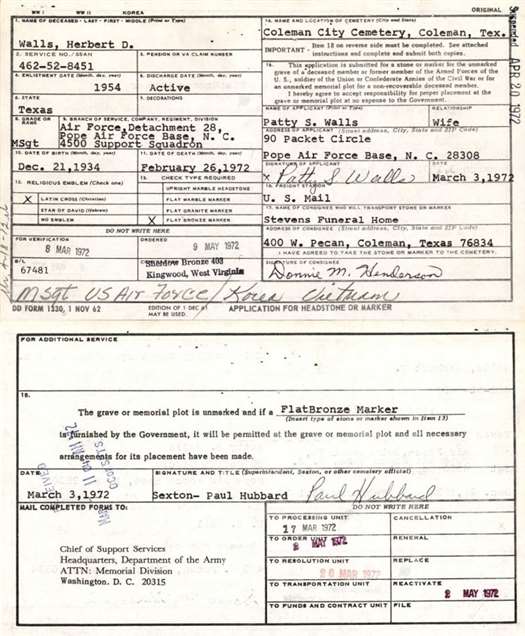 WW I WW II KOREA ORIGINAL
1. NAME OF DECEASED - LAST - FIRST - MIDDLE (Print or Type)
Walls, Herbert D.
14. NAME AND LOCATION OF CEMETERY (City and State)
Coleman City Cemetery, Coleman, Tex.
2. SERVICE NO./SSAN
462-52-8451
3. PENSION OR VA CLAIM NUMBER
IMPORTANT - Item 18 on reverse side must be completed. See attached
instructions and complete and submit both copies.
4. ENLISTMENT DATE (Month, day, year)
1954
5. DISCHARGE DATE (Month, day, year)
Active
This application is submitted for a stone or marker for the unmarked
grave of a deceased member or former member of the Armed Forces of the
U. S., soldier of the Union or Confederate Armies of the Civil War or for
an unmarked memorial plot for a non-recoverable deceased member.
I hereby agree to accept responsibility for proper placement at the
grave or memorial plot at no expense to the Government.
6. STATE
Texas
7. DECORATIONS
8. GRADE OR RANK
MSgt
9. BRANCH OF SERVICE, COMPANY, REGIMENT, DIVISION
Air Force, Detachment 28,
Pope Air Force Base, N. C.
4500 Support Squadron
NAME OF APPLICANT (Print or Type)
Patty S. Walls
RELATIONSHIP
Wife
ADDRESS OF APPLICANT (Street address, City, State and ZIP Code)
90 Packet Circle
Pope Air Force Base, N. C. 28308
10. DATE OF BIRTH (Month, day, year)
Dec. 21,1934
11. DATE OF DEATH (Month, day, year)
February 26,1972
SIGNATURE OF APPLICANT
X Patty S Walls
DATE
March 3,1972
12. RELIGIOUS EMBLEM (Check one)
X LATIN CROSS (Christian)
STAR OF DAVID (Hebrew)
NO EMBLEM
13. CHECK TYPE REQUIRED
UPRIGHT MARBLE HEADSTONE
FLAT MARBLE MARKER
FLAT GRANITE MARKER
X FLAT BRONZE MARKER
16. FREIGHT STATION
U. S. Mail
17. NAME OF CONSIGNEE WHO WILL TRANSPORT STONE OR MARKER
Stevens Funeral Home
DO NOT WRITE HERE
ADDRESS OF CONSIGNEE (Street address, City, State and ZIP Code)
400 W. Pecan, Coleman, Texas 76834
FOR VERIFICATION
8 MAR 1972
ORDERED
9 MAY 1972
I HAVE AGREED TO TAKE THE STONE OR MARKER TO THE CEMETERY.
B/L
67481
Sheidow Bronze 403
Kingwood, West Virginia
SIGNATURE OF CONSIGNEE
Donnie M. Henderson
MSgt US Air Force/ Korea Vietnam
DD FORM 1330, 1 NOV 62
EDITION OF 1 DEC 61
MAY BE USED.
APPLICATION FOR HEADSTONE OR MARKER
APR 20 1972
FOR ADDITIONAL SERVICE
18.
The grave or memorial plot is unmarked and if a FlatBronze Marker
(Insert type of stone or marker shown in Item 13)
is furnished by the Government, it will be permitted at the grave or memorial plot and all necessary
arrangements for its placement have been made.
DATE
March 3,1972
SIGNATURE AND TITLE (Superintendent, Sexton, or other cemetery official)
Sexton- Paul Hubbard Paul Hubbard
MAIL COMPLETED FORMS TO:
DO NOT WRITE HERE
Chief of Support Services
Headquarters, Department of the Army
ATTN: Memorial Division
Washington, D. C. 20315
TO PROCESSING UNIT
17 MAR 1972
CANCELLATION
TO ORDER UNIT
2 MAY 1972
RENEWAL
TO RESOLUTION UNIT
20 MAR 1972
REPLACE
TO TRANSPORTATION UNIT
REACTIVATE
2 MAY 1972
TO FUNDS AND CONTRACT UNIT
FILE